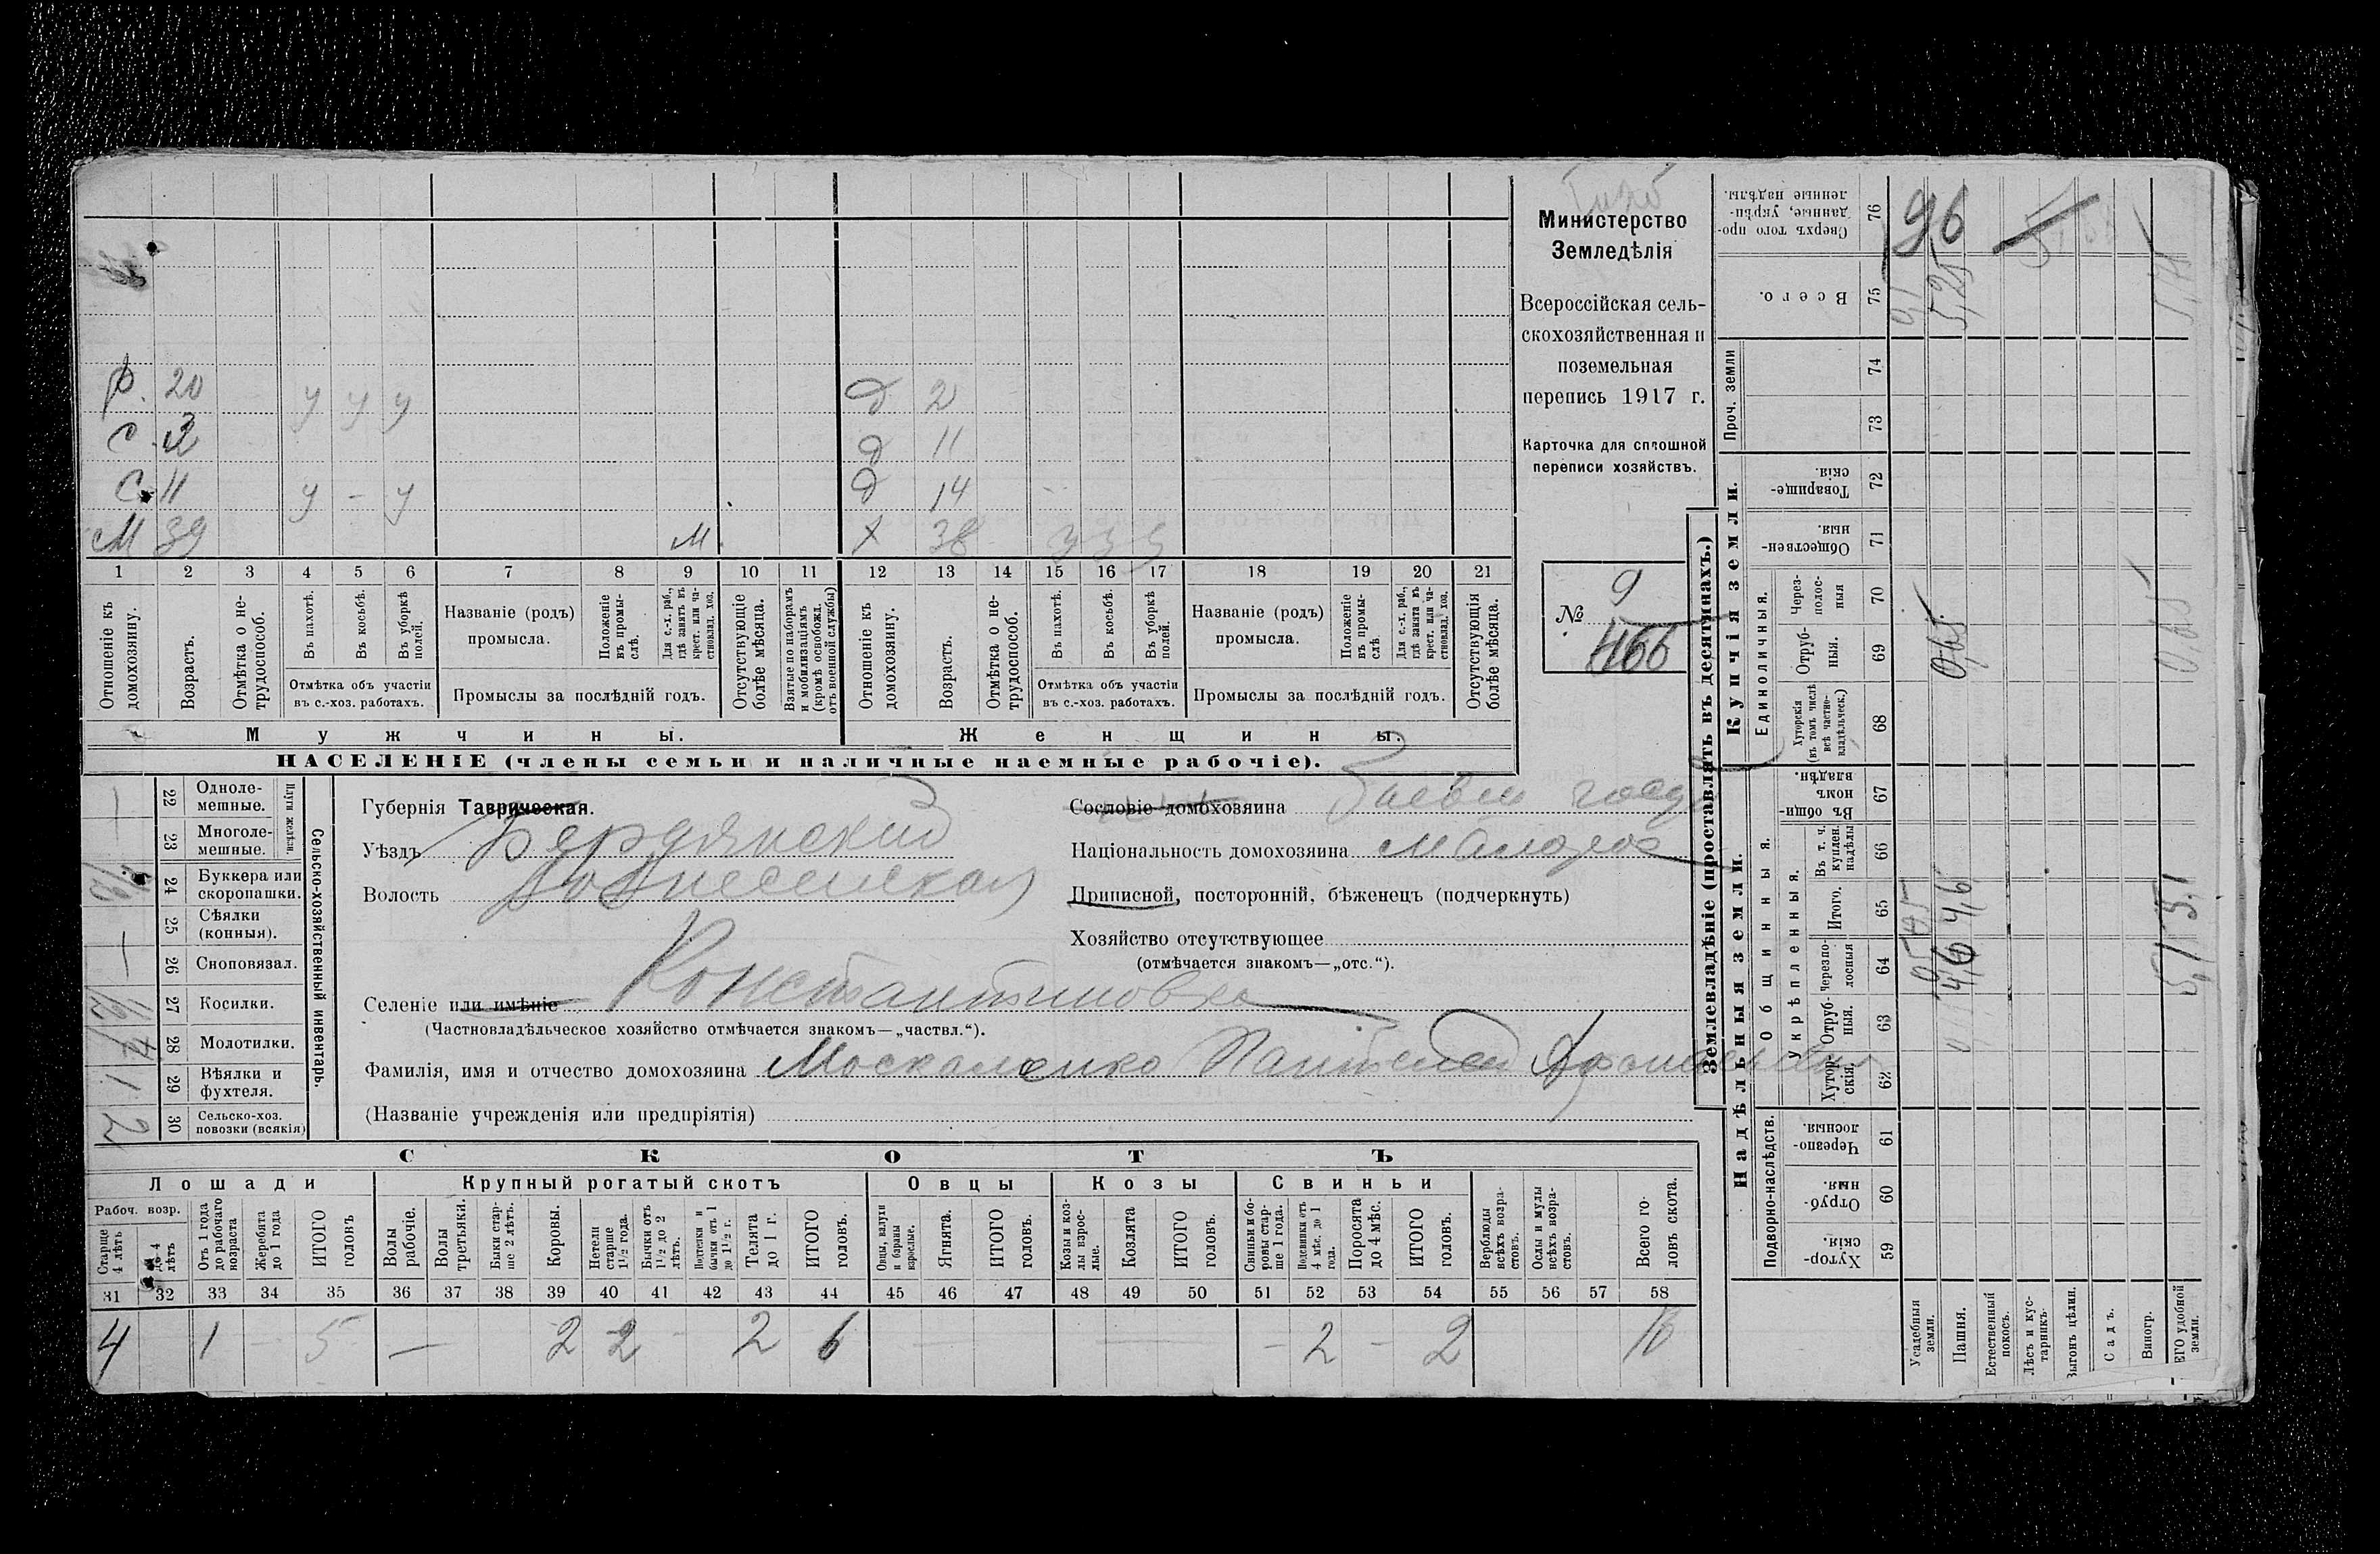 Министерство
Земледѣлія
Всероссійская сель-
скохозяйственная и
поземельная
перепись 1917 г.
Карточка для сплошной
переписи хозяйствъ.
№ 9
466
р. 20 у у у д 2
с 3 д 11
с 11 у - у д 14
М 39 М х 38 у у у
1 2 3 4 5 6 7 8 9 10 11 12 13 14 15 16 17 18 19 20 21
Отношеніе къ домохозяину.
Возрастъ.
Отмѣтка о не-трудоспособ.
Въ пахотѣ.
Въ косьбѣ.
Въ уборкѣ полей.
Отмѣтка объ участіи
въ с.-хоз. работахъ.
Названіе (родъ)
промысла.
Положеніе въ промы-слѣ.
Для с.-х. раб., гдѣ занятъ въ крест. или ча-стновлад. хоз.
Промыслы за послѣдній годъ.
Отсутствующіе болѣе мѣсяца.
Взятые по наборамъ и мобилизаціямъ (кромѣ освобожд. отъ военной службы)
Отношеніе къ домохозяину.
Возрастъ.
Отмѣтка о не-трудоспособ.
Въ пахотѣ.
Въ косьбѣ.
Въ уборкѣ полей.
Отмѣтка объ участіи
въ с.-хоз. работахъ.
Названіе (родъ)
промысла.
Положеніе въ промы-слѣ
Для с.-х. раб., гдѣ занята въ крест. или ча-стновлад. хоз.
Промыслы за послѣдній годъ.
Отсутствующія болѣе мѣсяца.
Мужчины. Женщины.
НАСЕЛЕНІЕ (члены семьи и наличные наемные рабочіе).
Сельско-хозяйственный инвентарь.
Плуги желѣзн.
22 Одноле-мешные. —
23 Многоле-мешные.
24 Буккера или скоропашки.
25 Сѣялки (конныя). —
26 Сноповязал. —
27 Косилки.
28 Молотилки.
29 Вѣялки и фухтеля. 1
30 Сельско-хоз. повозки (всякія) 2
Губернія Таврическая.
Уѣздъ Бердянский
Волость Вознесенская
Селеніе или имѣніе Константиновка
(Частновладѣльческое хозяйство отмѣчается знакомъ—„частвл.“).
Фамилія, имя и отчество домохозяина Москаленко Пантелей
(Названіе учрежденія или предпріятія)
Сословіе домохозяина
Національность домохозяина малорос
Приписной, посторонній, бѣженецъ (подчеркнуть)
Хозяйство отсутствующее
(отмѣчается знакомъ—„отс.“).
СКОТЪ
Лошади Крупный рогатый скотъ Овцы Козы Свиньи
Рабоч. возр.
Старше 4 лѣтъ
до 4 лѣтъ
Отъ 1 года до рабочаго возраста
Жеребята до 1 года
ИТОГО головъ
Волы рабочіе.
Волы третьяки.
Быки стар-ше 2 лѣтъ.
Коровы.
Нетели старше 1½ года.
Бычки отъ 1½ до 2 лѣтъ.
Подтелки и бычки отъ 1 до 1½ г.
Телята до 1 г.
ИТОГО головъ.
Овцы, валухи и бараны взрослые.
Ягнята.
ИТОГО головъ.
Козы и коз-лы взрос-лые.
Козлята
ИТОГО головъ.
Свиньи и бо-ровы стар-ше 1 года.
Подсвинки отъ 4 мѣс. до 1 года.
Поросята до 4 мѣс.
ИТОГО головъ.
Верблюды всѣхъ возра-стовъ.
Ослы и мулы всѣхъ возра-стовъ.
Всего го-ловъ скота.
31 32 33 34 35 36 37 38 39 40 41 42 43 44 45 46 47 48 49 50 51 52 53 54 55 56 57 58
4 1 - 5 — 2 2 - 2 6 — — - 2 - 2
Землевладѣніе (проставлять въ десятинахъ.)
Надѣльныя земли. Купчія земли.
Подворно-наслѣдств.
Общинныя.
Укрѣпленныя.
Единоличныя.
Проч. земли
59 Хутор-скія.
60 Отруб-ныя.
61 Черезпо-лосныя.
62 Хутор-скія.
63 Отруб-ныя.
64 Черезпо-лосныя
65 Итого.
66 Въ т. ч. куплен. надѣлы
67 Въ общин-номъ владѣн.
68 Хуторскія (въ томъ числѣ всѣ частно-владѣльческ.)
69 Отруб-ныя.
70 Через-полос-ныя
71 Обществен-ныя.
72 Товарище-скія.
73
74
75 Всего.
76 Сверхъ того про-данные, укрѣп-ленные надѣлы.
Усадебныя земли.
Пашня. 4,6 4,6 0,65 5,25
Естественный покосъ.
Лѣсъ и кус-тарникъ.
Выгонъ цѣлин.
Садъ.
Виногр.
ЕГО удобной земли. 5,1 5,1 0,65
96